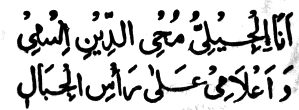 اَنَا الْجِيْلِىُّ مُحْىُ الدِّيْنِ اِسْمِىْ
وَ اَعْلَامِىْ عَلٰى رَاْسِ الْجِبَالِ